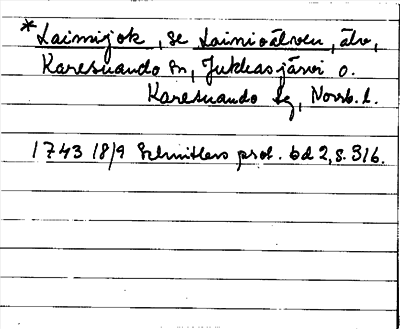 *Laimijok, se Lainioälven, älv,
Karesuando sn, Jukkasjärvi o.
Karesuando lg, Norrb. l.
1743 18/9 Schnitlers prot. bd 2, s. 316.